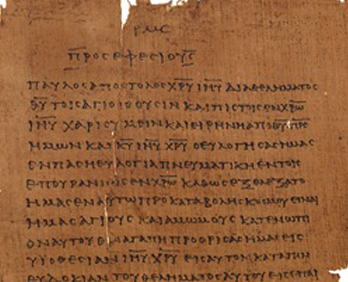 ΡΜϚ
ΠΡΟΣ ΕΦΕΣΙΟΥΣ
ΠΑΥΛΟΣ ΑΠΟΣΤΟΛΟΣ ΧΡΥ ΙΗΥ ΔΙΑ ΘΕΛΗΜΑΤΟΣ
ΘΥ ΤΟΙΣ ΑΓΙΟΙΣ ΟΥΣΙΝ ΚΑΙ ΠΙΣΤΟΙΣ ΕΝ ΧΡΩ
ΙΗΥ ΧΑΡΙΣ ΥΜΕΙΝ ΚΑΙ ΕΙΡΗΝΗ ΑΠΟ ΘΥ ΠΡΣ
ΗΜΩΝ ΚΑΙ ΚΥ ΙΗΥ ΧΡΥ Ο ΕΥΛΟΓΗΣΑΣ ΗΜΑΣ
ΕΝ ΠΑΣΗ ΕΥΛΟΓΙΑ ΠΝΕΥΜΑΤΙΚΗ ΕΝ ΤΟΙΣ
ΕΠΟΥΡΑΝΙΟΙΣ ΕΝ ΧΡΩ ΚΑΘΩΣ ΕΞΕΛΕΞΑΤΟ
ΗΜΑΣ ΕΝ ΑΥΤΩ ΠΡΟ ΚΑΤΑΒΟΛΗΣ ΚΟΣΜΟΥ ΕΙΝΑΙ
ΗΜΑΣ ΑΓΙΟΥΣ ΚΑΙ ΑΜΩΜΟΥΣ ΚΑΤΕΝΩΠΙ
ΟΝ ΑΥΤΟΥ ΕΝ ΑΓΑΠΗ ΠΡΟΟΡΙΣΑΣ ΗΜΑΣ ΕΙΣ
ΥΙΟΘΕΣΙΑΝ ΙΗΥ ΧΡΥ ΕΙΣ ΑΥΤΟΝ ΚΑΤΑ ΤΗΝ
ΕΥΔΟΚΙΑΝ ΤΟΥ ΘΕΛΗΜΑΤΟΣ ΑΥΤΟΥ ΕΙΣ ΕΠΑΙ